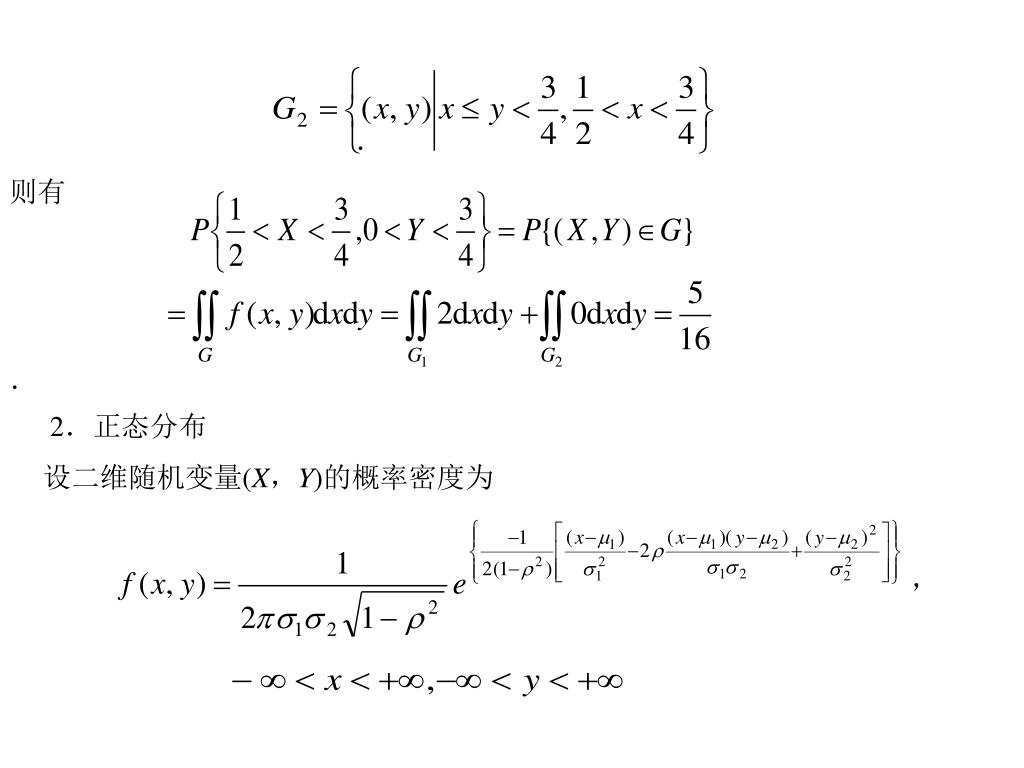 G₂ = {(x, y) | x ≤ y < 3/4, 1/2 < x < 3/4}
.
则有
P{1/2 < X < 3/4 ,0 < Y < 3/4} = P{(X ,Y) ∈ G}
= ∬_G f (x, y)dxdy = ∬_{G₁} 2dxdy + ∬_{G₂} 0dxdy = 5/16
.
2．正态分布
设二维随机变量(X，Y)的概率密度为
f (x, y) = 1/(2πσ₁σ₂√(1 − ρ²)) e^{ −1/(2(1−ρ²)) [ (x−μ₁)/σ₁² −2ρ (x−μ₁)(y−μ₂)/(σ₁σ₂) + (y−μ₂)²/σ₂² ] } ，
− ∞ < x < +∞,−∞ < y < +∞